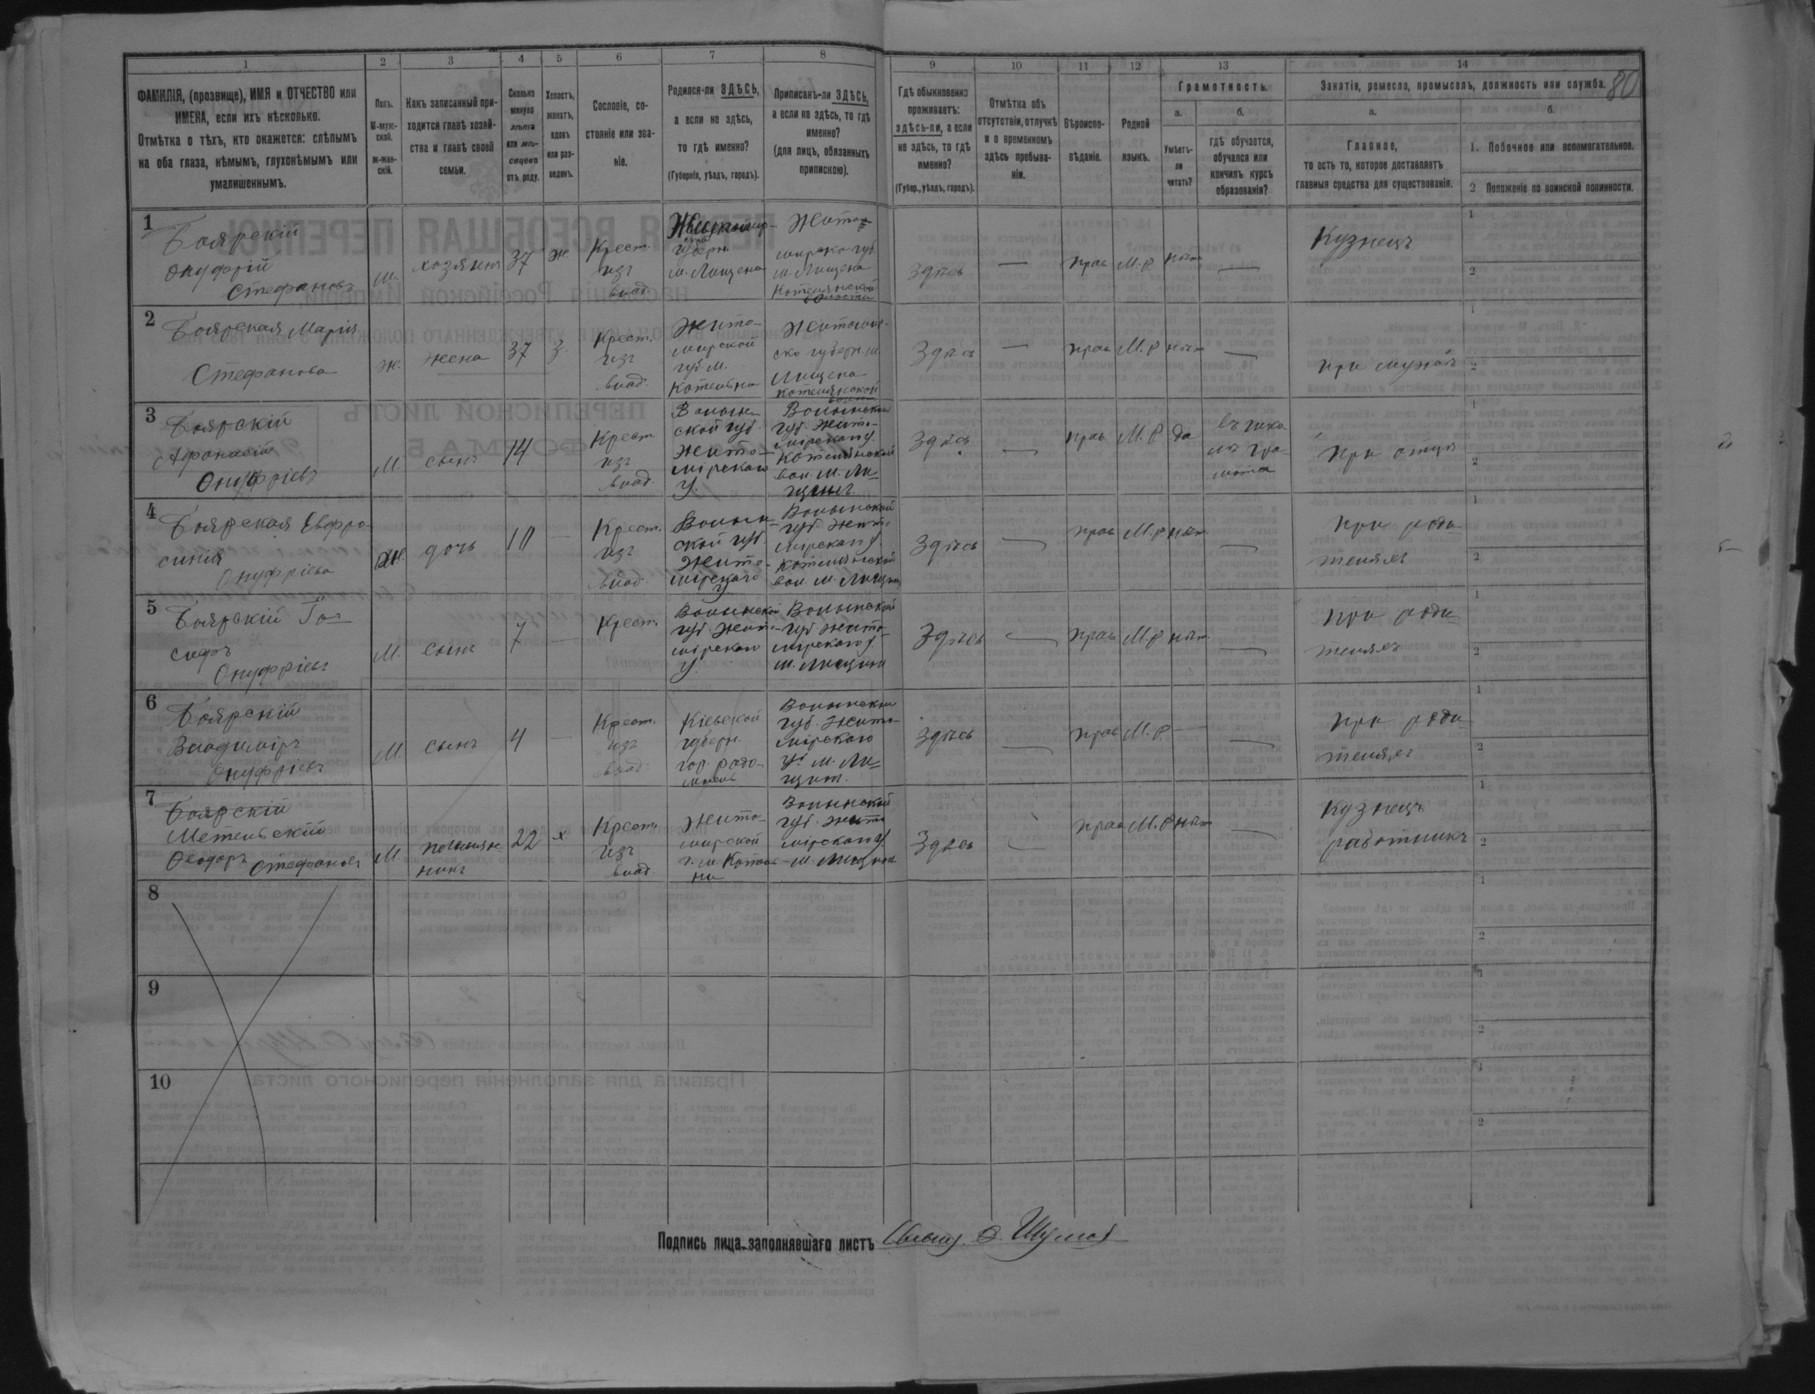 80
1
2
3
4
5
6
7
8
9
10
11
12
13
14
ФАМИЛІЯ, (прозвище), ИМЯ и ОТЧЕСТВО или
ИМЕНА, если ихъ нѣсколько.
Отмѣтка о тѣхъ, кто окажется: слѣпымъ
на оба глаза, нѣмымъ, глухонѣмымъ или
умалишеннымъ.
Полъ.
М-муж-
ской.
ж-жен-
скій.
Какъ записанный при-
ходится главѣ хозяй-
ства и главѣ своей
семьи.
Сколько
минуло
лѣтъ
или мѣ-
сяцевъ
отъ роду.
Холостъ,
женатъ,
вдовъ
или раз-
веденъ.
Сословіе, со-
стояніе или зва-
ніе.
Родился-ли ЗДѢСЬ,
а если не здѣсь,
то гдѣ именно?
(Губернія, уѣздъ, городъ).
Приписанъ-ли ЗДѢСЬ,
а если не здѣсь, то гдѣ
именно?
(для лицъ, обязанныхъ
припискою).
Гдѣ обыкновенно
проживаетъ:
здѣсь-ли, а если
не здѣсь, то гдѣ
именно?
(Губер., уѣздъ, городъ).
Отмѣтка объ
отсутствіи, отлучкѣ
и о временномъ
здѣсь пребыва-
ніи.
Вѣроиспо-
вѣданіе.
Родной
языкъ.
Грамотность.
а.
Умѣетъ-
ли
читать?
б.
гдѣ обучается,
обучался или
кончилъ курсъ
образованія?
Занятіе, ремесло, промыселъ, должность или служба.
а.
Главное,
то есть то, которое доставляетъ
главныя средства для существованія.
б.
1. Побочное или вспомогательное.
2 Положеніе по воинской повинности.
1
Боярскій
Онуфрій
Стефановъ
м.
хозяинъ
37
ж.
Крест.
изъ
влад.
губерн.
м. Лищена
Жито-
мирско губ
м. Лищена
Котелянской
волости
Здѣсь
—
прав
М.р
нѣт
—
Кузнецъ
1
2
2
Боярская Марія
Стефанова
ж.
жена
37
з.
Крест.
изъ
влад.
Жито-
мирской
губ м.
Котельна
Житомир-
ско губерн. м.
Лищена
Котелянской
Здѣсь
—
прав
М.р
нѣт
—
при мужѣ
1
2
3
Боярскій
Афонасій
Онуфріевъ
М.
сынъ
14
Крест
изъ
влад
Волын-
ской губ
Жито-
мірскаго
у.
Волынской
губ. Жито-
мірскаго у.
Котелянской
вол. м. Ли-
Здѣсь
—
прав
М.р
да
при отцѣ
1
2
4
Боярская Евфро-
синія
Онуфріева
Ж.
дочь
10
—
Крест.
изъ
влад.
Волын-
ской губ
Жито-
мірскаго
у
Волынской
губ Жито-
мірскаго у
Котелянской
вол. м. Лищена
Здѣсь
—
прав
М.р
нѣт
—
при роди-
теляхъ
1
2
5
Боярскій Іо-
сифъ
Онуфріевъ
М.
сынъ
7
—
Крест.
Волынской
губ Жито-
мірскаго
у.
Волынской
губ Жито-
мірскаго у
м. Лищина
Здѣсь
—
прав
М.р
нѣт
—
при роди-
теляхъ
1
2
6
Боярскій
Владиміръ
Онуфріевъ
М.
сынъ
4
—
Крест.
изъ
влад.
Кіевской
губерн.
гор. Радо-
мысль
Волынской
губ. Жито-
мірскаго
у. м. Ли-
Здѣсь
—
прав
М.р
—
—
при роди-
теляхъ
1
2
7
Боярскій
Метельскій
Феодоръ Стефановъ
М
22
х
Крест.
изъ
влад
Жито-
мирской
г. м. Котель-
на
Волынской
губ. Жито-
мірскаго у
м. Лищина
Здѣсь
—
прав
М.р
нѣт
—
Кузнецъ
работникъ
1
2
8
1
2
9
1
2
10
1
2
Подпись лица, заполнявшаго листъ